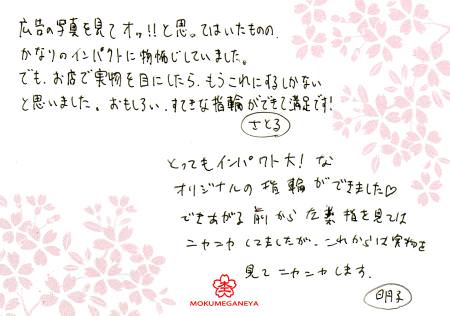 広告の写真を見てオッ!!と思ってはいたものの、
かなりのインパクトに物怖じしていました。
でも、お店で実物を目にしたら、もうこれにするしかない
と思いました。おもしろい、すてきな指輪ができて満足です!
さとる
とってもインパクト大!な
オリジナルの指輪ができました♡
できあがる前から左薬指を見ては
ニヤニヤしてましたが、これからは実物を
見てニヤニヤします。
明子
MOKUMEGANEYA